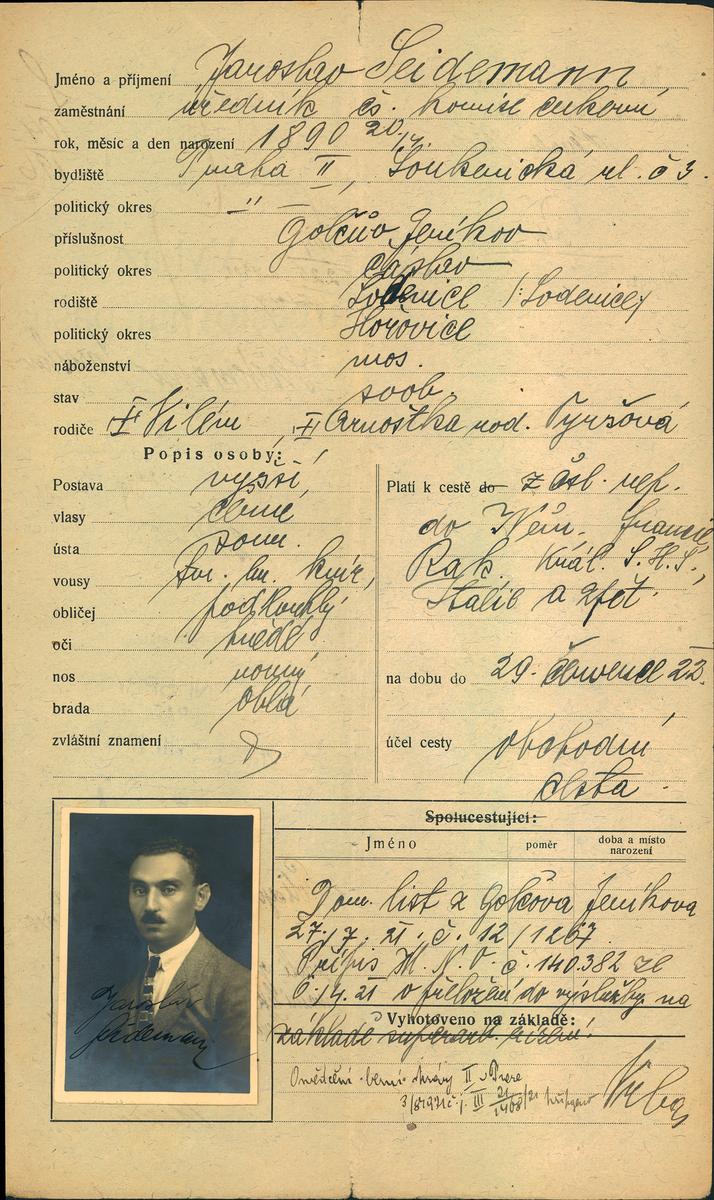 Jméno a příjmení Jaroslav Seidemann
zaměstnání úředník čs. komise cukerní
rok, měsíc a den narození 1890 20/
bydliště Praha II, Soukenická ul. č 3.
politický okres "
příslušnost Golčův Jeníkov
politický okres Čáslav
rodiště Lodenice /: Lodenice /
politický okres Hořovice
náboženství mos.
stav svob.
rodiče I Vilém, II Arnoštka rod.
Popis osoby:
Postava vyšší
vlasy černé
ústa soum.
vousy kn. knír,
obličej podlouhlý
oči hnědé
nos rovný
brada oblá
zvláštní znamení
Platí k cestě do z čsl. rep.
do Něm. Francie
Rak. Král. S. H. S.,
Italie a zpět.
na dobu do 29. července 22.
účel cesty obchodní
cesta.
Spolucestující:
Jméno poměr doba a místo narození
Dom. list z Golčova Jeníkova
27./7. 21. č. 12/1267
Přípis M. N. O. č. 140.382 ze
4. 21 o přeložení do výslužby na
Vyhotoveno na základě:
základě superarb. řízení.
berní správy II v Praze
III
Jaroslav
Seidemann